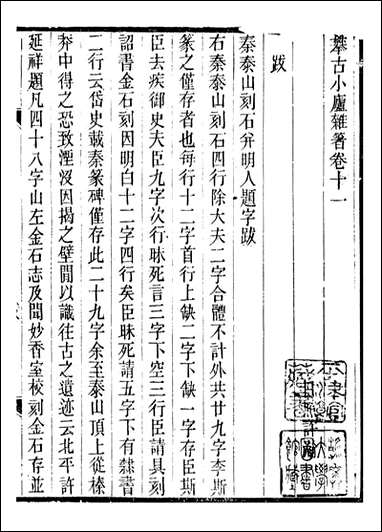 攀古小廬雜著卷十一
跋
秦泰山刻石并明人題字跋
右秦泰山刻石四行除大夫二字合體不計外共廿九字李斯
篆之僅存者也每行十二字首行上缺二字下缺一字存臣斯
臣去疾御史夫臣九字次行昧死言三字下空三行臣請具刻
詔書金石刻因明白十二字四行矣臣昧死請五字下有隸書
二行云岱史載秦篆碑僅存此二十九字余至泰山頂上從榛
莽中得之恐致湮沒因揭之壁間以識往古之遺迹云北平許
延祥題凡四十八字山左金石志及聞妙香室校刻金石存並